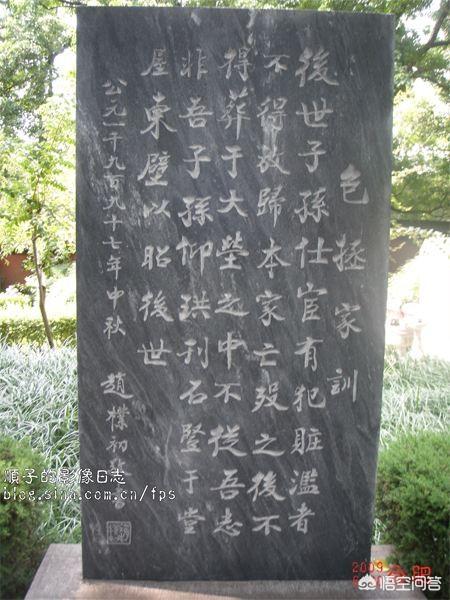 包拯家訓
後世子孫仕宦有犯贓濫者
不得放歸本家亡歿之後不
得葬于大塋之中不從吾志
非吾子孫仰珙刊石竪于堂
屋東壁以昭後世
公元一千九百九十七年中秋 趙樸初
順子的影像日志
blog.sina.com.cn/fps
2009
合肥
悟空问答